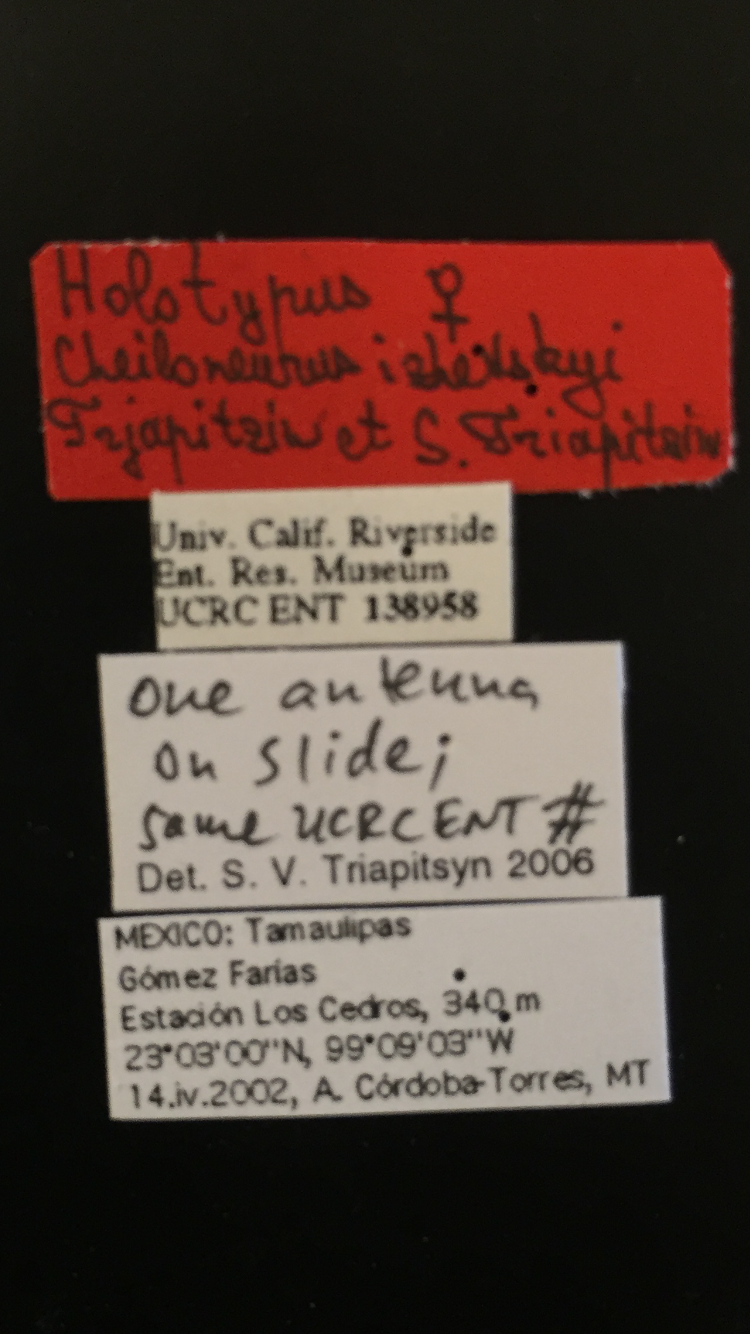 Holotypus ♀
Cheiloneurus izhevskyi
Trjapitzin et S. Triapitsin
Univ. Calif. Riverside
Ent. Res. Museum
UCRC ENT 138958
one antenna
on slide;
same UCRC ENT #
Det. S. V. Triapitsyn 2006
MEXICO: Tamaulipas
Gómez Farías
Estación Los Cedros, 340 m
23°03'00"N, 99°09'03"W
14.iv.2002, A. Córdoba-Torres, MT